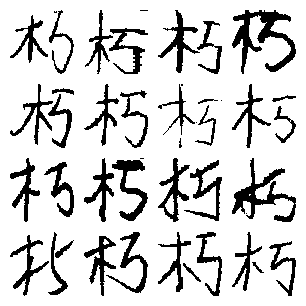 朽朽朽朽
朽朽朽朽
朽朽朽朽
朽朽朽朽